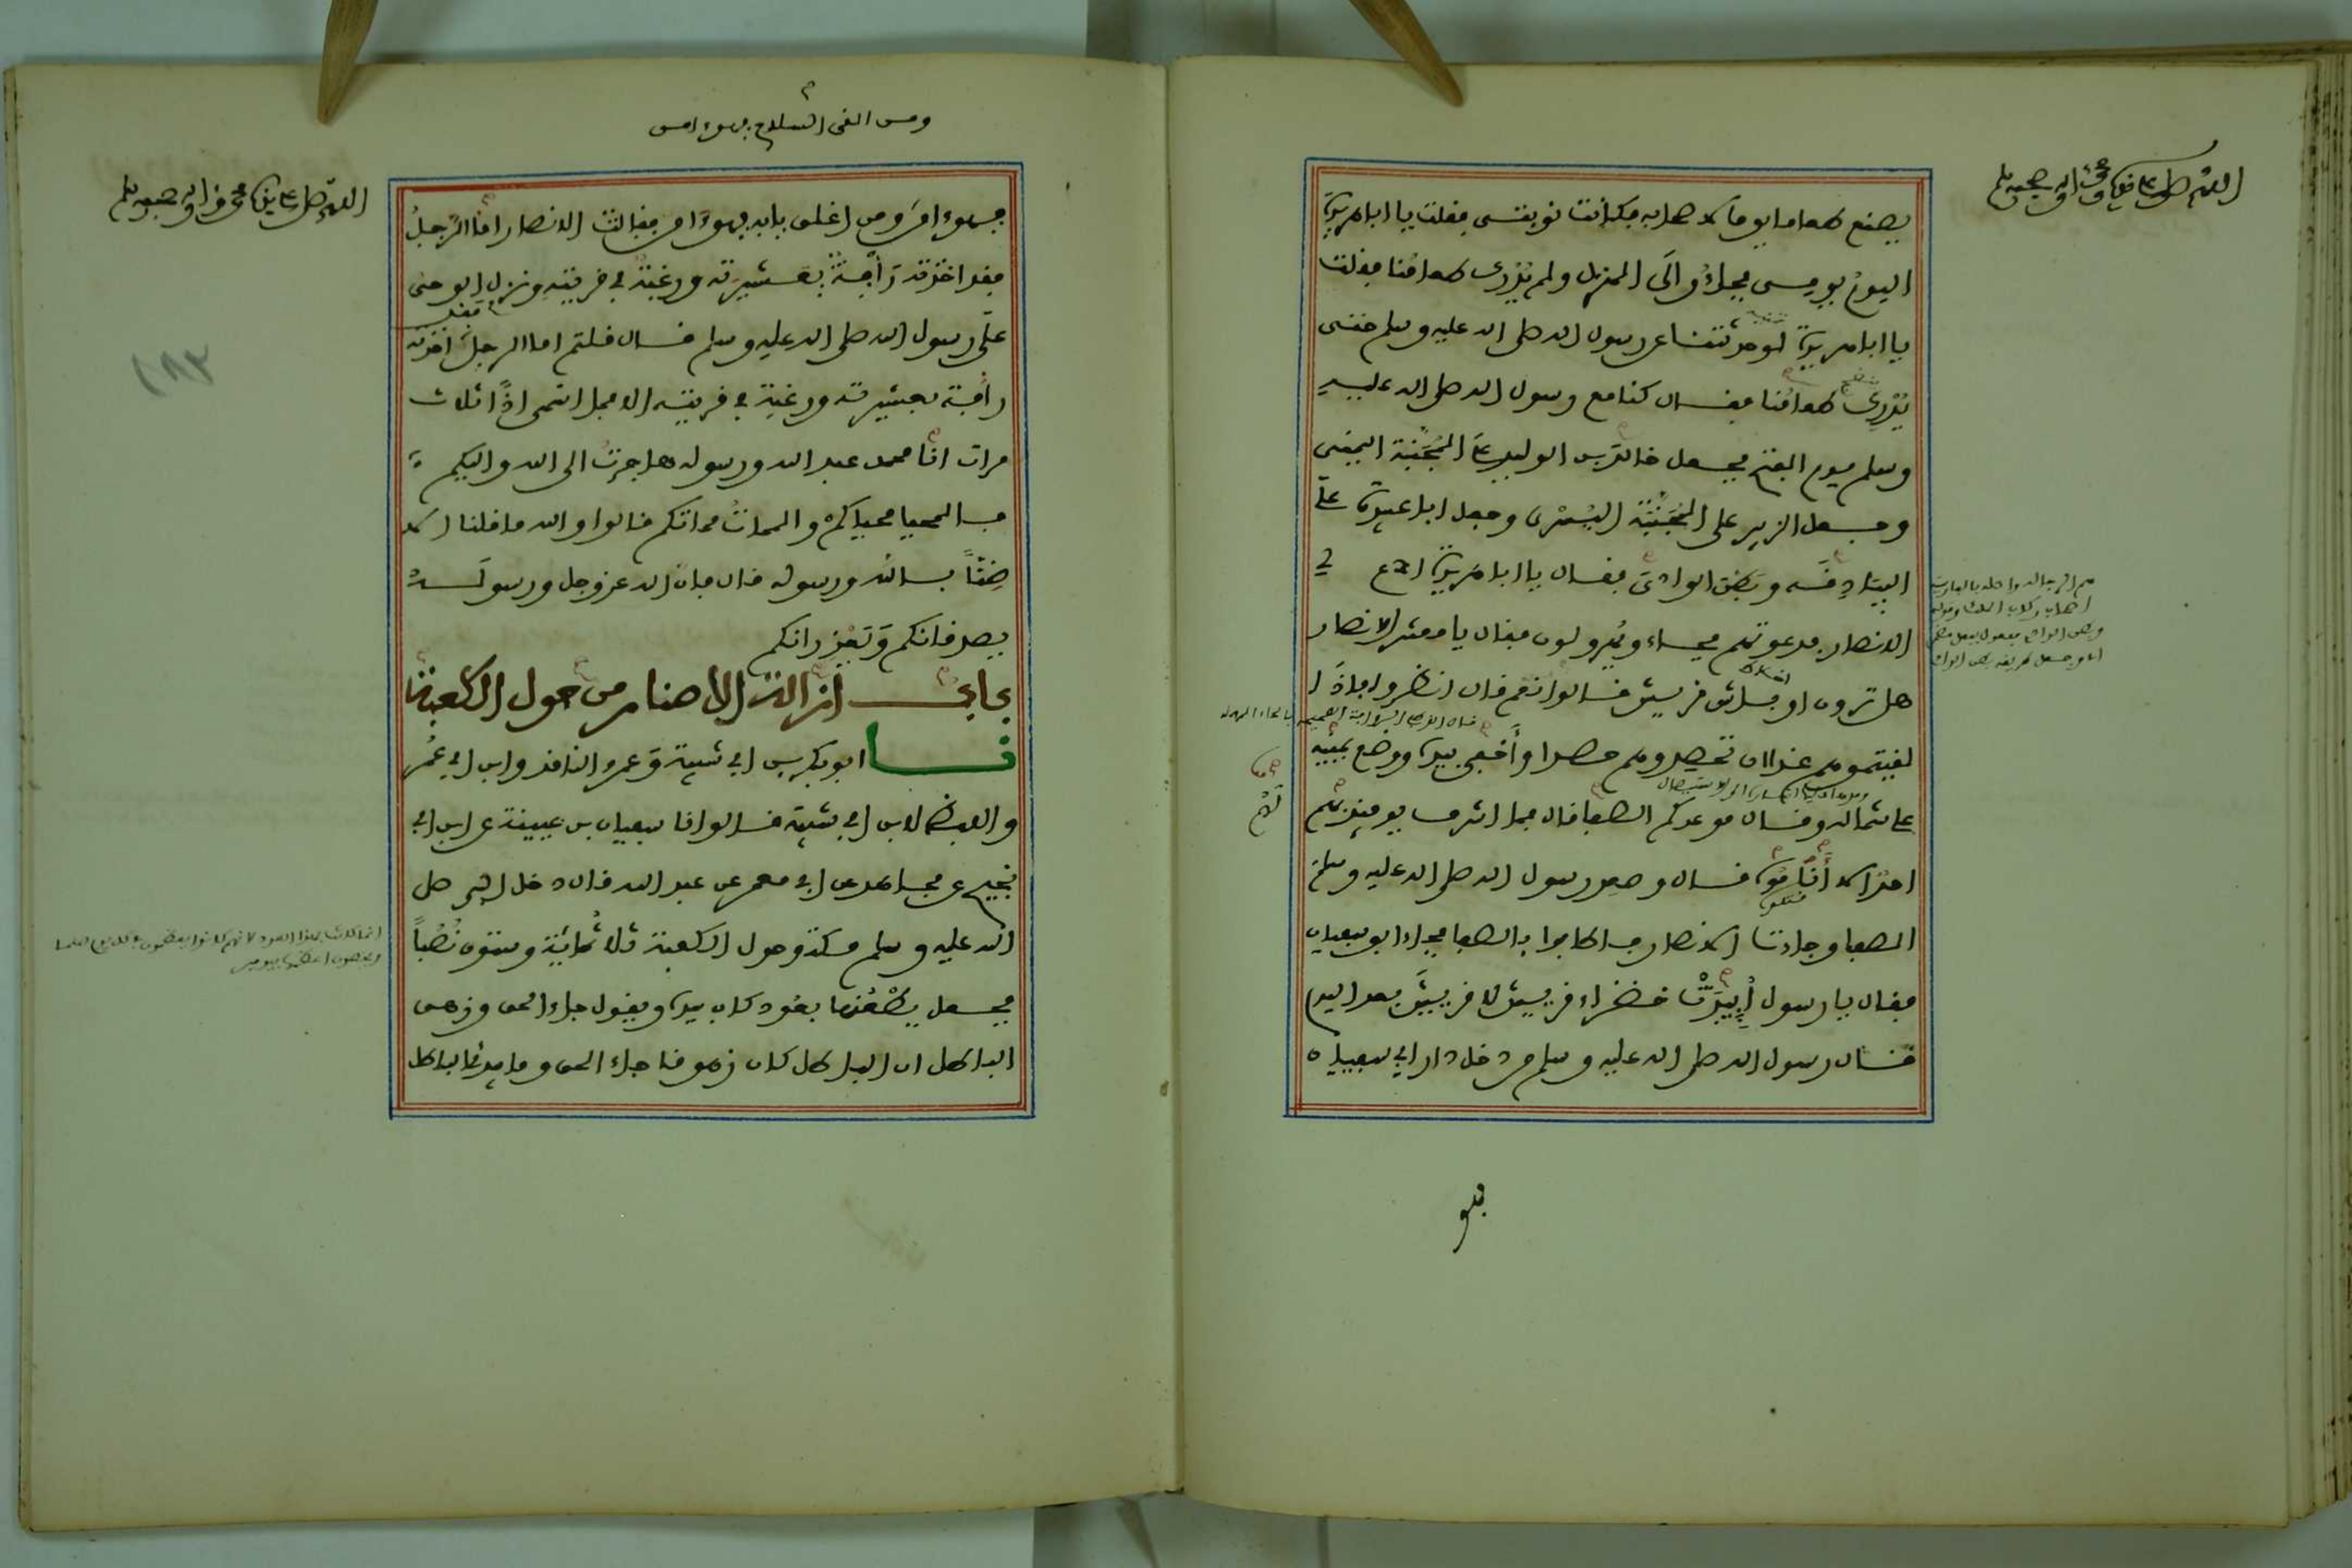 اللهم صل على سيدنا محمد وآله وصحبه وسلم
يصنع طعاما يوما لاصحابه فكانت نوبتي فقلت يا ابا هريرة
اليوم يومي فجاءوا الى المنزل ولم يدرك طعامنا فقلت
يا ابا هريرة لو حدثتنا عن رسول الله صلى الله عليه وسلم حتى
يدرك طعامنا فقال كنا مع رسول الله صلى الله عليه
وسلم يوم الفتح فجعل خالد بن الوليد على المجنبة اليمنى
وجعل الزبير على المجنبة اليسرى وجعل ابا عبيدة على
البياذقة وبطن الوادي فقال يا ابا هريرة ادع لي
الانصار فدعوتهم فجاءوا يهرولون فقال يا معشر الانصار
هل ترون اوباش قريش قالوا نعم قال انظروا اذا
لقيتموهم غدا ان تحصدوهم حصدا واخفى بيده ووضع يمينه
على شماله وقال موعدكم الصفا قال فما اشرف يومئذ لهم
احد الا أناموه قال وصعد رسول الله صلى الله عليه وسلم
الصفا وجاءت الانصار فاطافوا بالصفا فجاء ابو سفيان
فقال يا رسول أبيدت خضراء قريش لا قريش بعد اليوم
فقال رسول الله صلى الله عليه وسلم من دخل دار ابي سفيان
فهو
اللهم صل على سيدنا محمد وآله وصحبه وسلم
ومن القى السلاح فهو امن
١٨٣
فهو امن ومن اغلق بابه فهو امن فقالت الانصار اما الرجل
فقد اخذته رأفة بعشيرته ورغبة في قريته ونزل الوحي
على رسول الله صلى الله عليه وسلم قال قلتم اما الرجل فقد اخذته
رأفة بعشيرته ورغبة في قريته الا فما اسمي اذا ثلاث
مرات انا محمد عبد الله ورسوله هاجرت الى الله واليكم
فالمحيا محياكم والممات مماتكم قالوا والله ما قلنا الا
ضنا بالله ورسوله قال فان الله عز وجل ورسوله
يصدقانكم ويعذرانكم
باب ازالة الاصنام من حول الكعبة
نا ابو بكر بن ابي شيبة وعمرو الناقد وابن ابي عمر
واللفظ لابن ابي شيبة قالوا نا سفيان بن عيينة عن ابن ابي
نجيح عن مجاهد عن ابي معمر عن عبد الله قال دخل النبي صلى
الله عليه وسلم مكة وحول الكعبة ثلاثمائة وستون نصبا
فجعل يطعنها بعود كان بيده ويقول جاء الحق وزهق
الباطل ان الباطل كان زهوقا جاء الحق وما يبدئ الباطل